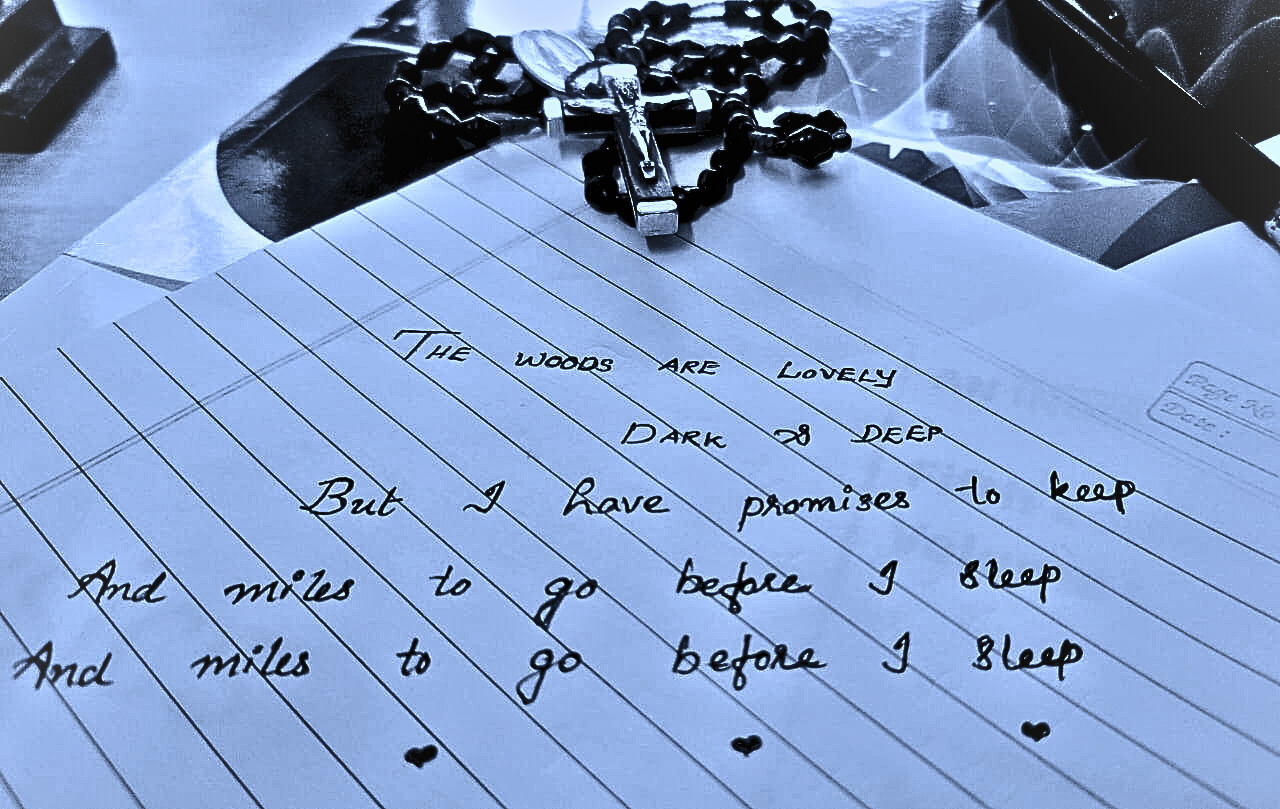 THE WOODS ARE LOVELY
DARK & DEEP
But I have promises to keep
And miles to go before I sleep
And miles to go before I sleep
Page No
Date: